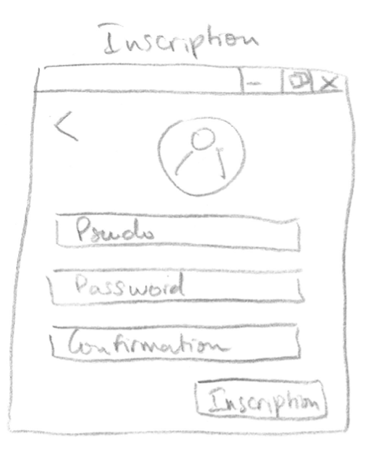 Inscription
Pseudo
Password
Confirmation
Inscription